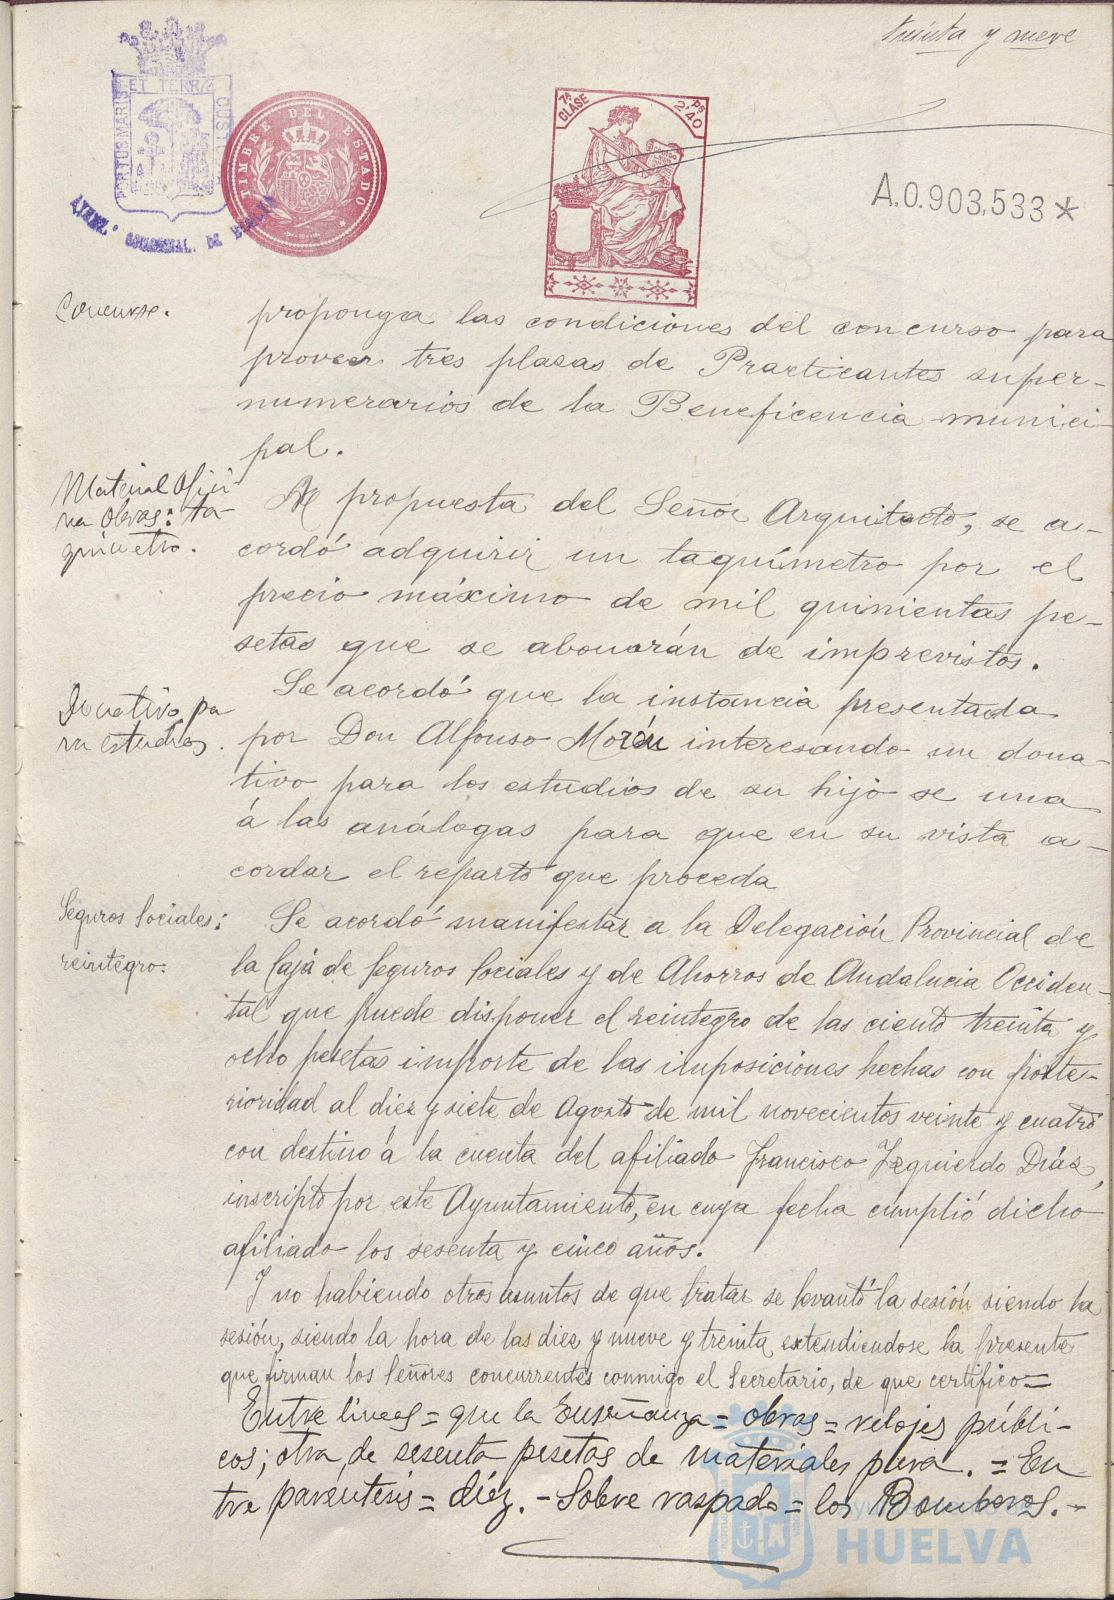 treinta y nueve
PORTUS MARIS ET TERRÆ CUSTODIA
AYUNT.º CONSTITUCIONAL. DE HUELVA
TIMBRE DEL ESTADO
7ª CLASE
2'40 Ps
A.0.903,533*
Concurso.
proponga las condiciones del concurso para
proveer tres plazas de Practicantes super-
numerarios de la Beneficencia munici-
pal.
Material Ofici
na Obras: ta-
químetro.
A propuesta del Señor Arquitecto, se a-
cordó adquirir un taquímetro por el
precio máximo de mil quinientas pe-
setas que se abonarán de imprevistos.
Donativo pa
ra estudios.
Se acordó que la instancia presentada
por Don Alfonso Morón interesando un dona-
tivo para los estudios de su hijo se una
á las análogas para que en su vista a-
cordar el reparto que proceda
Seguros Sociales:
reintegro.
Se acordó manifestar a la Delegación Provincial de
la Caja de Seguros Sociales y de Ahorros de Andalucia Occiden-
tal que puede disponer el reintegro de las ciento treinta y
ocho pesetas importe de las imposiciones hechas con poste-
rioridad al diez y siete de Agosto de mil novecientos veinte y cuatro
con destino á la cuenta del afiliado Francisco Izquierdo Díaz,
inscripto por este Ayuntamiento, en cuya fecha cumplió dicho
afiliado los sesenta y cinco años.
Y no habiendo otros asuntos de que tratar se levantó la sesión siendo la
sesión, siendo la hora de las diez y nueve y treinta, extendiendose la presente
que firman los Señores concurrentes conmigo el Secretario, de que certifico=
Entre lineas = que la Enseñanza = obras = relojes públi-
cos; otra de sesenta pesetas de materiales para. = En
tre parentesis = diez. - Sobre raspado = los Bomberos. -
HUELVA